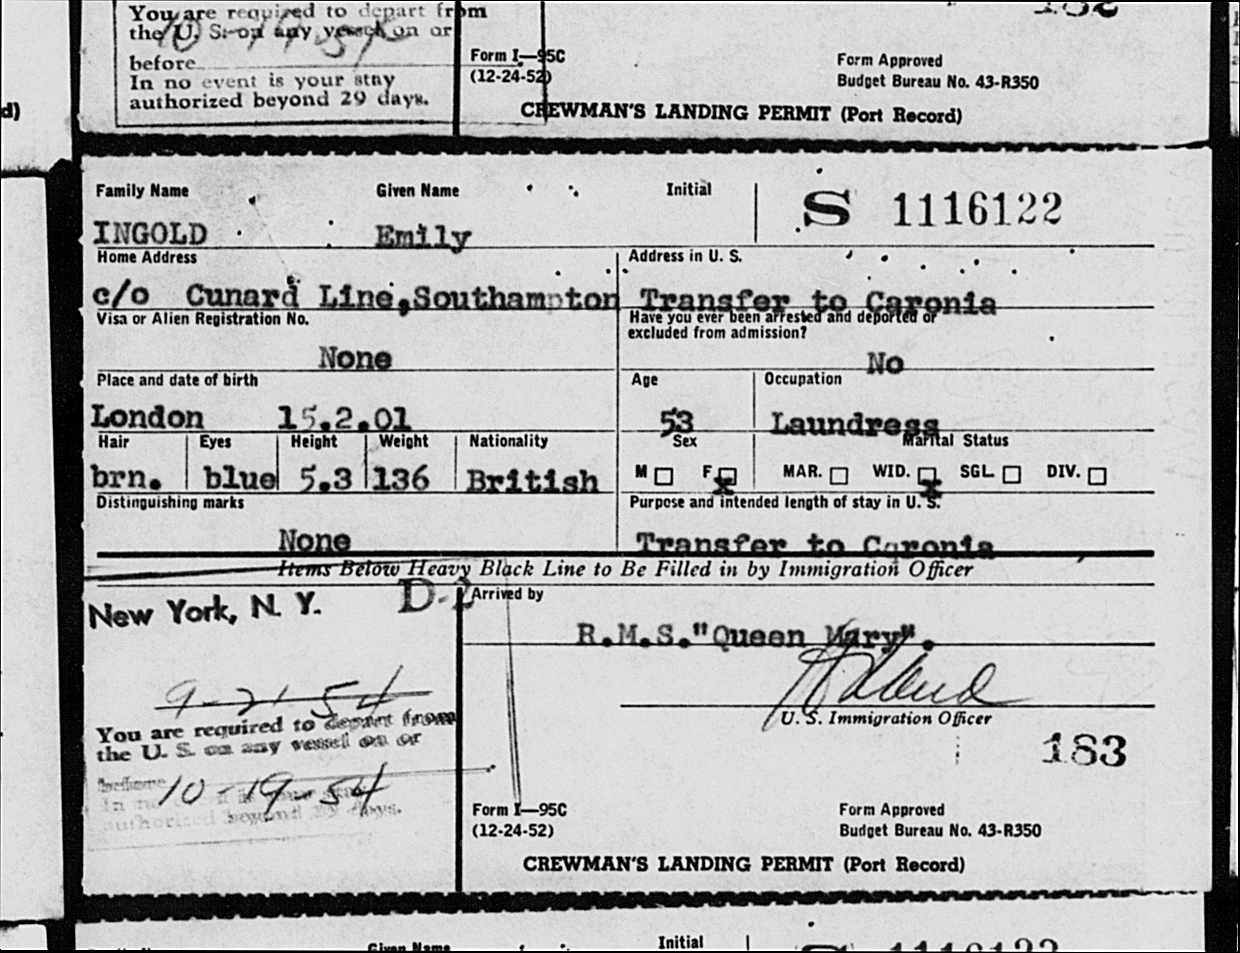 You are required to depart from
the U. S. on any vessel on or
before
In no event is your stay
authorized beyond 29 days.
Form I—95C
(12-24-52)
Form Approved
Budget Bureau No. 43-R350
CREWMAN'S LANDING PERMIT (Port Record)
d)
Family Name Given Name Initial
S 1116122
INGOLD Emily
Home Address Address in U. S.
c/o Cunard Line,Southampton Transfer to Caronia
Visa or Alien Registration No. Have you ever been arrested and deported or
excluded from admission?
None No
Place and date of birth Age Occupation
London 15.2.01 53 Laundress
Hair Eyes Height Weight Nationality Sex Marital Status
brn. blue 5.3 136 British M F x MAR. WID. x SGL. DIV.
Distinguishing marks Purpose and intended length of stay in U. S.
None Transfer to Caronia
Items Below Heavy Black Line to Be Filled in by Immigration Officer
New York, N. Y. D-2 Arrived by
R.M.S."Queen Mary".
9-21-54
U. S. Immigration Officer
You are required to depart from
the U. S. on any vessel on or
before 10-19 54
authorized beyond 29 days.
183
Form I—95C
(12-24-52)
Form Approved
Budget Bureau No. 43-R350
CREWMAN'S LANDING PERMIT (Port Record)
Given Name Initial